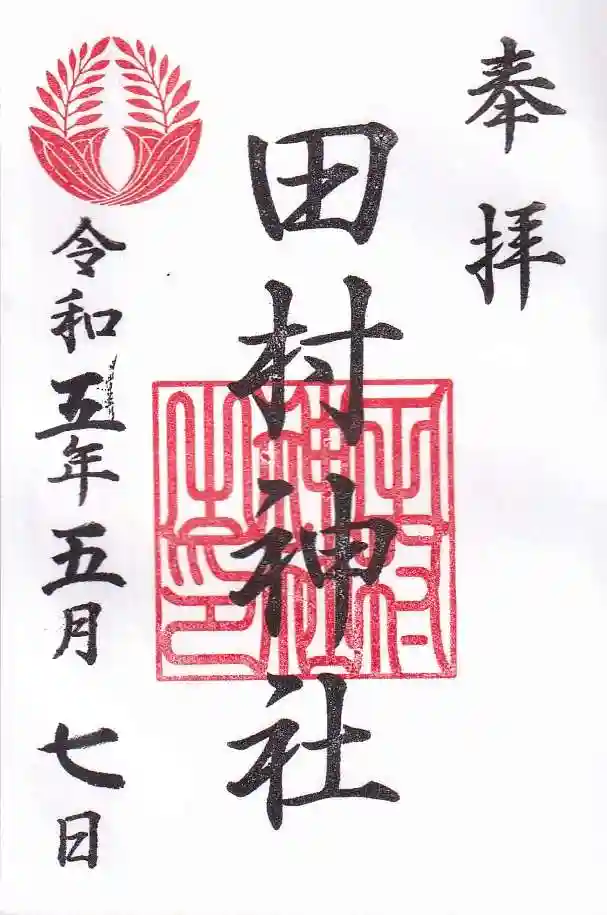 奉拝
田村神社
令和五年五月七日